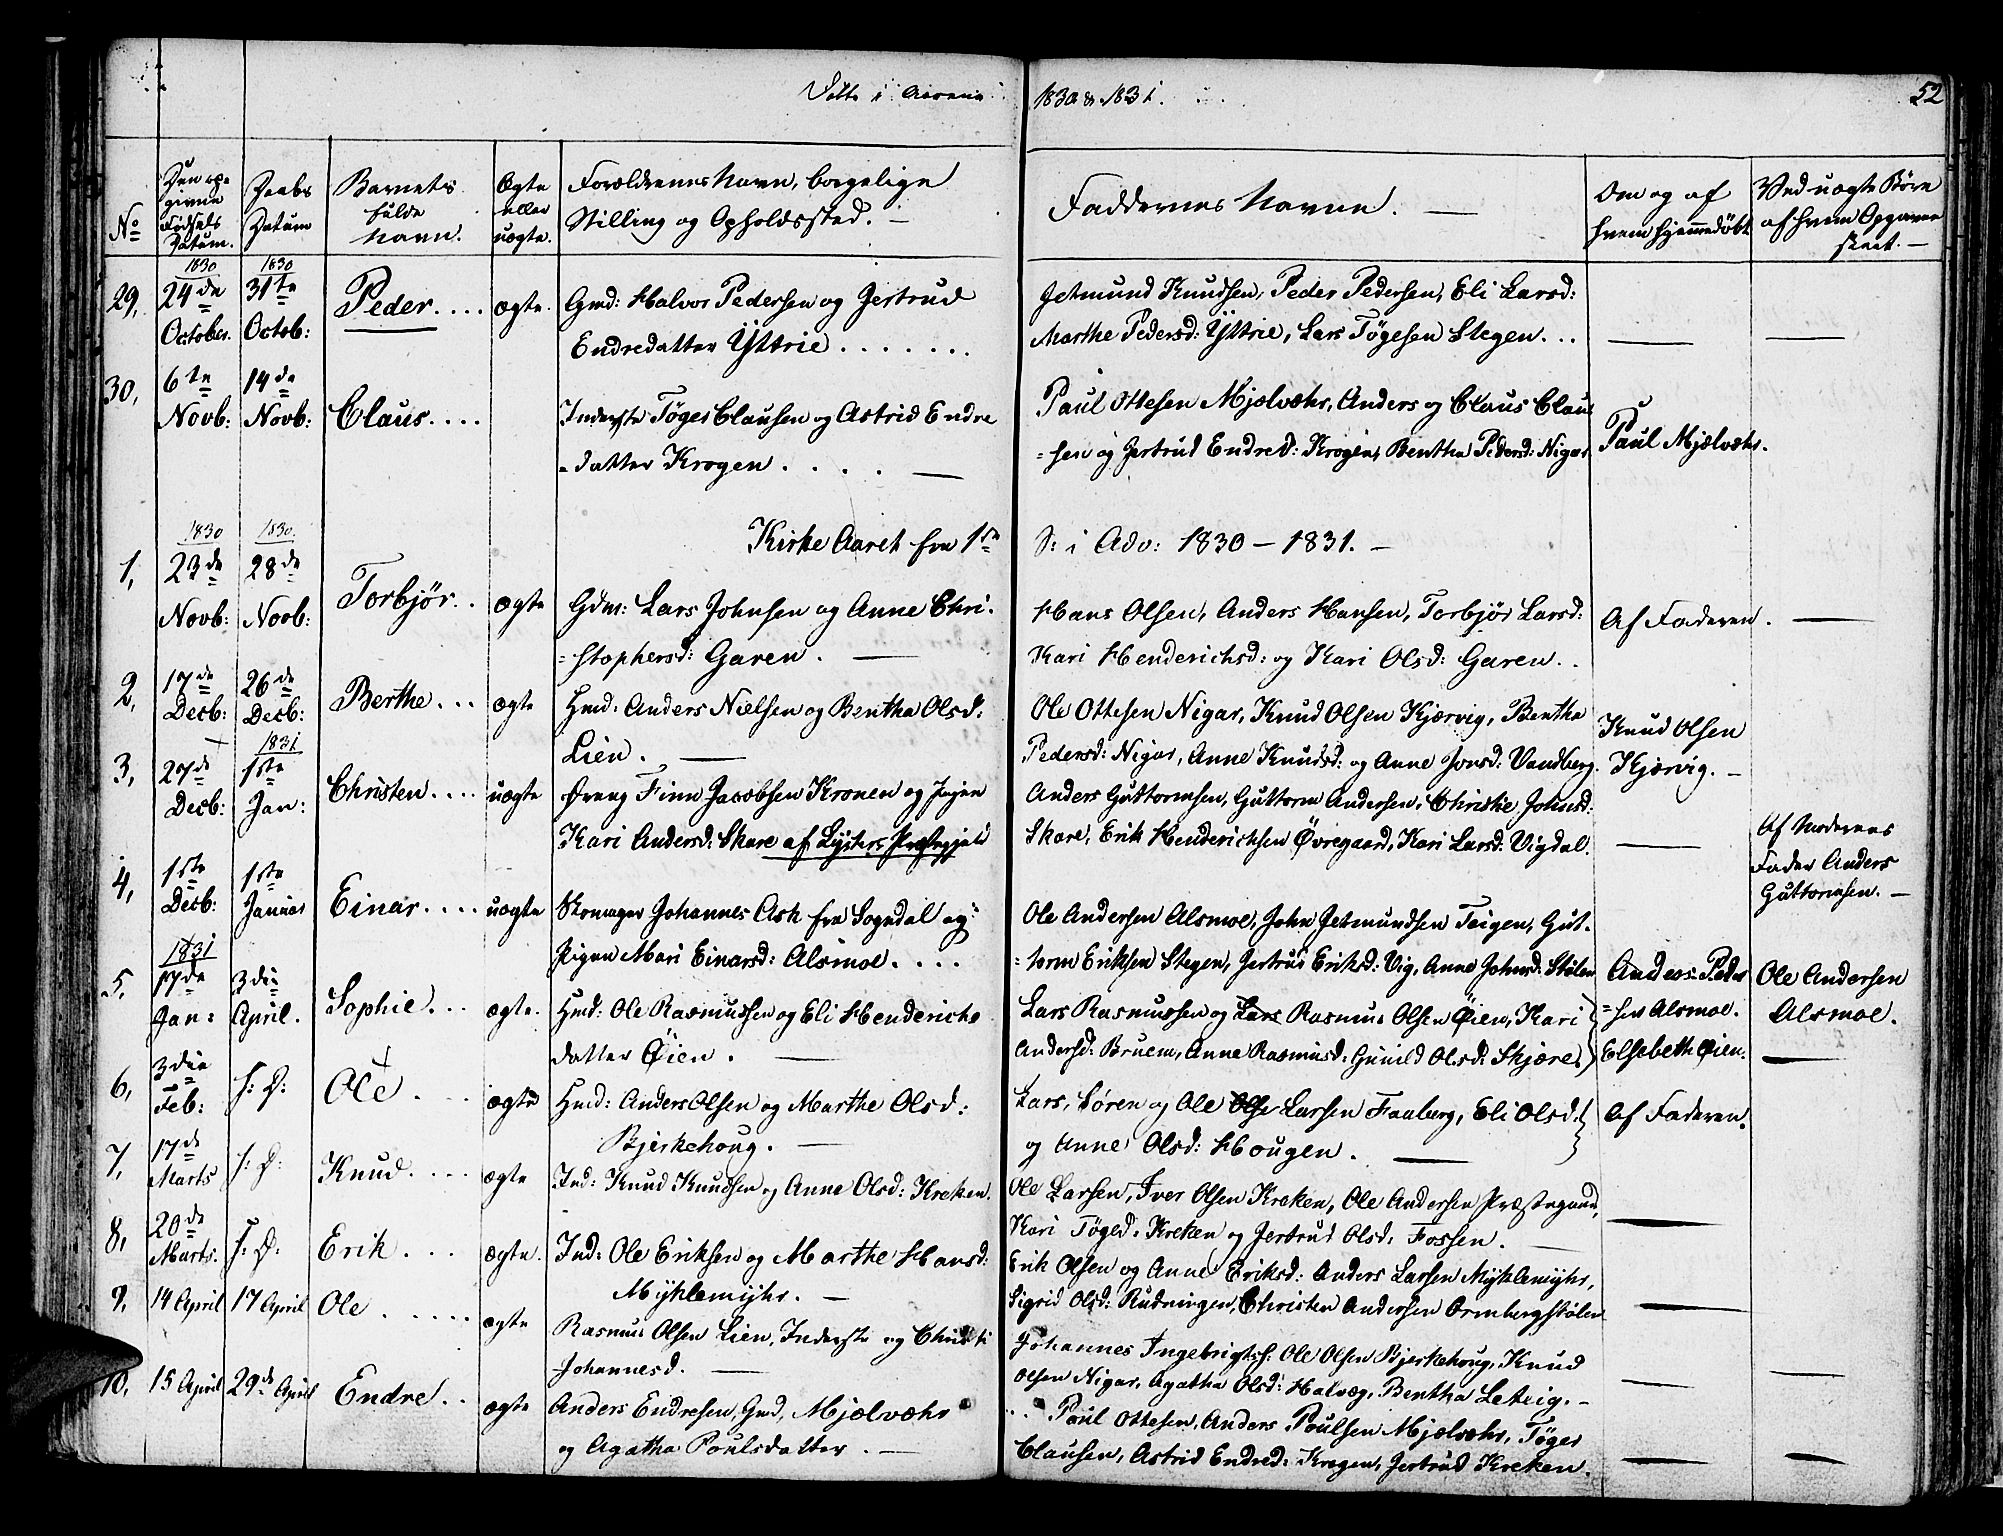 Døbte i Aarene 1830 & 1831. 52
No
Den opgivne Fødsels Datum.
Daabs Datum
Barnets fulde Navn.
Ægte eller uægte.
Forældrenes Navn, borgelige
Stilling og Opholdssted. —
Faddernes Navne. —
Om og af
hvem hjemmedøbt
Ved uægte Børn
af hvem Opgaven
skeet. —
1830 1830
29, 24de October. 31te Octob: Peder.... ægte. Gmd: Halvor Pedersen og Jertrud
Endredatter Ÿttrie.......
Jetmund Knudsen, Peder Pedersen, Eli Larsd:
Marthe Pedersd: Ÿttrie, Lars Tøgesen Stegen...
30, 6te Novb: 14de Novb: Claus.... Inderste Tøger Clausen og Astrid Endre
=datter Krogen.... —
Paul Ottesen Mjelvæhr, Anders og Claus Clau
=sen og Jertrud Endred: Krogen, Bentha Pedersd: Nigar.
Paul Mjelvæhr.
Kirke Aaret fra 1ste S: i Adv: 1830 — 1831. —
1830 1830
1, 23de Novb: 28de Novb: Torbjør.. ægte Gdm: Lars Johnsen og Anne Chri-
=stophersd: Garen. —
Hans Olsen, Anders Hansen, Torbjør Larsd:
Kari Henderichsd: og Kari Olsd: Garen..
Af Faderen. —
2, 17de Decb: 26de Decb: Berthe... ægte Hmd: Anders Nielsen og Bentha Olsd:
Lien. —
Ole Ottesen Nigar, Knud Olsen Kjærvig, Bentha
Pedersd: Nigar, Anne Knudsd: og Anne Jonsd: Vandberg.
Knud Olsen
Kjærvig. —
1831
3, 27de Decb: 1ste Jan: Christen.... uægte Dreng Finn Jacobsen Kronen og Pigen
Kari Andersd: Skare af Lÿsters Præstegjeld
Anders Guttormsen, Guttorm Andersen, Christie Johnsd:
Skare, Erik Henderichsen Øvregaard, Kari Larsd: Vigdal.
Af Moderens
Fader Anders
Guttormsen. —
4, 1ste Decb: 1ste Januar Einar.... uægte Skomager Johannes Ask fra Sogndal og
Pigen Mari Einarsd: Alsmoe....
Ole Andersen Alsmoe, John Jetmundsen Teigen, Gut-
=torm Eriksen Stegen, Jertrud Eriksd: Vig, Anne Johnsd: Stølen
Anders Peder
=sen Alsmoe.
Ole Andersen
Alsmoe.
1831
5, 17de Jan: 3die April. Sophie... ægte. Hmd: Ole Rasmussen og Eli Henderichs
datter Øien. —
Lars Rasmussen og Lars Rasmus Olsen Øien, Kari
Andersd: Bruem, Anne Rasmusd: Gunild Olsd: Skjøre.
Elsebeth Øien.
6, 3die Feb: s: D: Ole... ægte Hmd: Anders Olsen og Marthe Olsd:
Bjerkehoug. —
Lars, Søren og Ole Larsen Faaberg, Eli Olsd:
og Anne Olsd: Hougen. —
Af Faderen.
7, 17de Marts s: D: Knud.... ægte Ind: Knud Knudsen og Anne Olsd: Kreken.
Ole Larsen, Iver Olsen Kreken, Ole Andersen Præstegaard,
Kari Tøged: Kreken og Jertrud Olsd: Fossen. —
8, 20de Marts. s: D: Erik... ægte. Ind: Ole Eriksen og Marthe Hansd:
Mÿklemÿhr. —
Erik Olsen og Anne Eriksd: Anders Larsen Mÿklemÿhr,
Sigrid Olsd: Rudningen, Christen Andersen Ormbergstølen
9, 14 April 17 April Ole..... ægte Rasmus Olsen Lien, Inderste og Christi
Johannesd. —
Johannes Ingebrigts: Ole Olsen Bjerkehoug, Knud
Olsen Nigar, Agatha Olsd: Halvæg, Bentha Letvig. —
10, 15 April 29de April Endre.. ægte Anders Endresen, Gmd, Mjelvæhr
og Agatha Poulsdatter. —
Paul Ottesen, Anders Poulsen Mjelvæhr, Tøger
Clausen, Astrid Endred: Krogen, Jertrud Kreken.